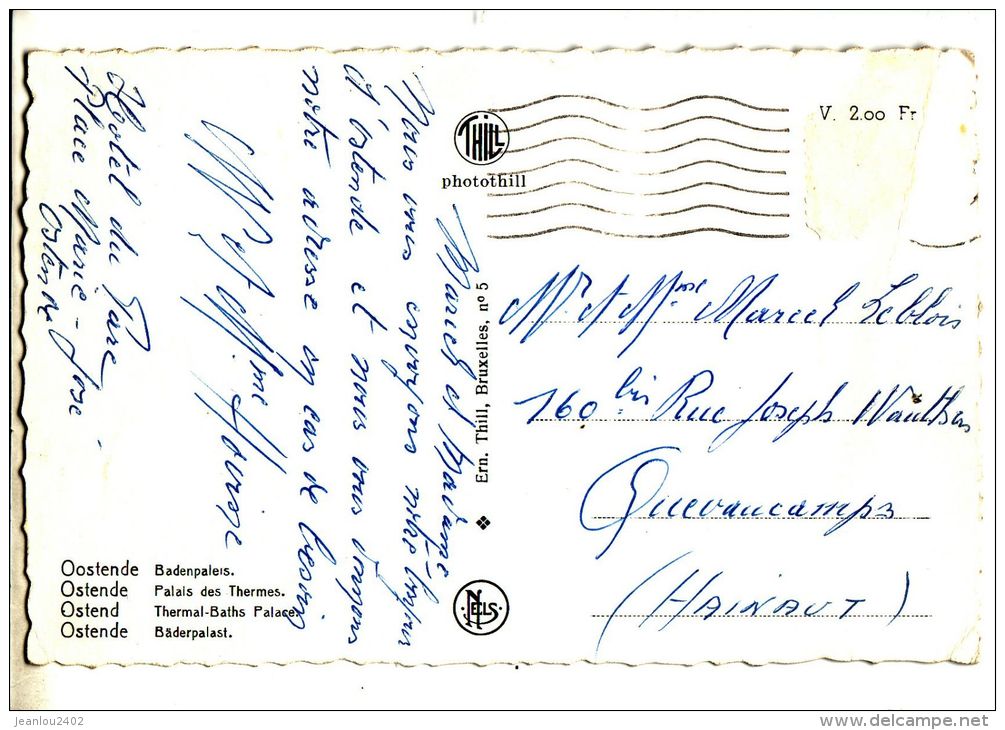 Marcel et Madame
Nous vous envoyons notre bonjour
d'ostende et nous vous
notre adresse en cas de besoin
Mr et Mme
Hotel du Parc
Place Marie-José
Ostende
THILL
photothill
V. 2.00 Fr
Ern. Thill, Bruxelles, nº 5
Mr et Mme Marcel Leblois
160 bis Rue Joseph Wauthers
Quevaucamps
(HAINAUT)
Oostende Badenpaleis.
Ostende Palais des Thermes.
Ostend Thermal-Baths Palace.
Ostende Bäderpalast.
NELS
jeanlou2402
www.delcampe.net